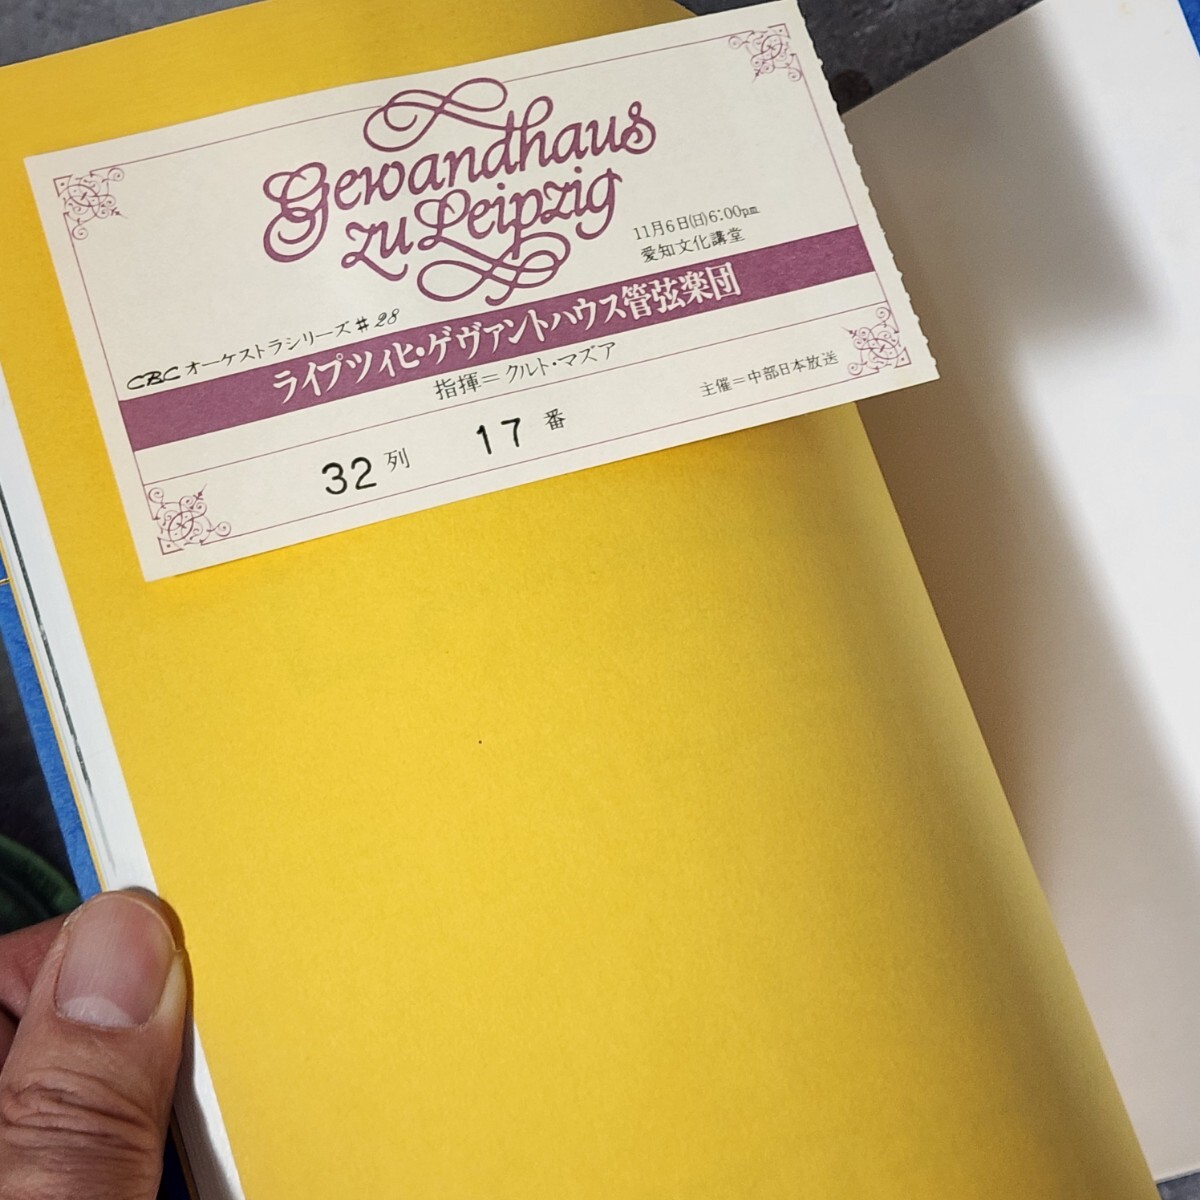 Gewandhaus
zu Leipzig
11月6日(日)6:00pm
愛知文化講堂
CBCオーケストラシリーズ#28
ライプツィヒ・ゲヴァントハウス管弦楽団
指揮=クルト・マズア
主催=中部日本放送
32列 17番